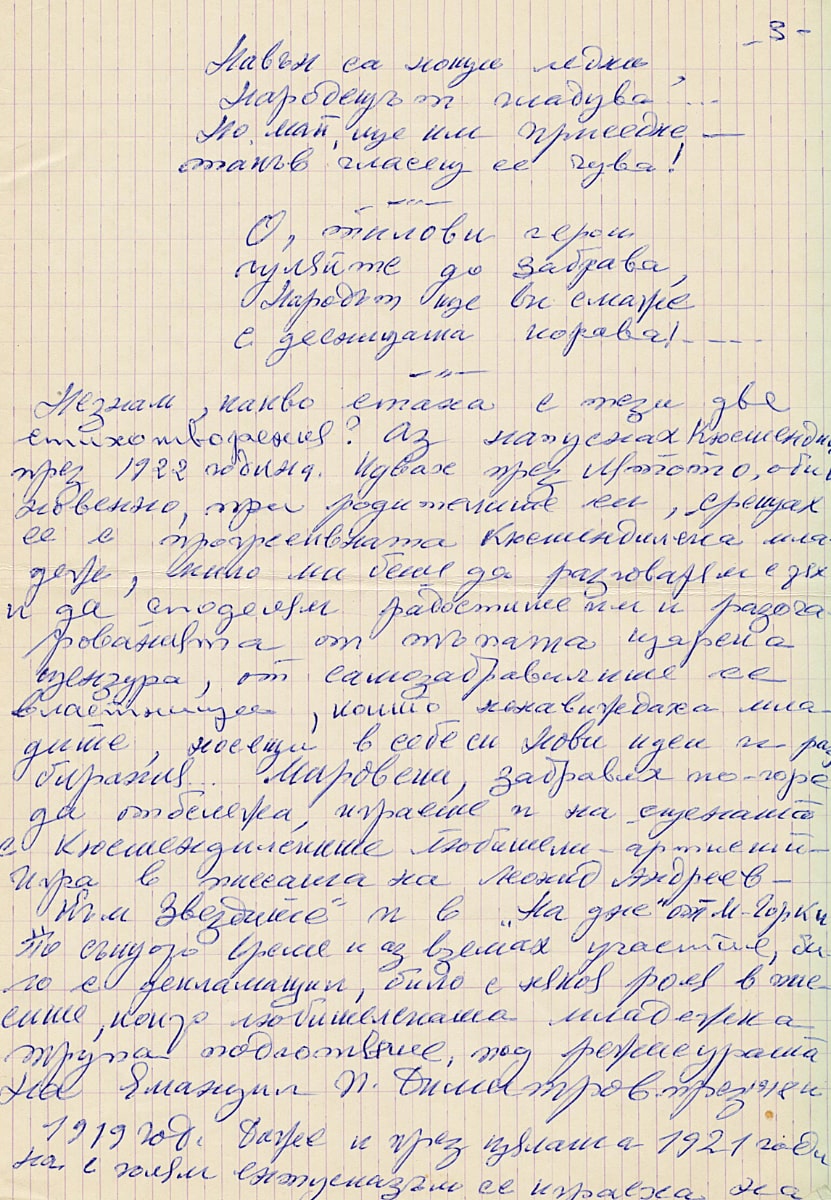 - 3 -
Навън са нощи ледни,
Народецът гладува...
Но, май, ще им приседне —
такъв гласец се чува!
О, тилови герои
гуляйте до забрава,
Народът ще ви смаже
с десницата корава!
Незнам, какво стана с тези две
стихотворения? Аз напуснах Кюстендил
през 1922 година. Идвах през лятото, оби
новенно, при родителите си, срещах
се с прогресивната Кюстендилска мла-
деж, мило ми беше да разговарям с тях
и да споделям радостите им и разоча
рованията от тъпата царска
цензура, от самозабравилите се
властници, които ненавиждаха мла-
дите, носещи в себе си нови идеи и раз
бирания... Маровски, забравих по-горе
да отбележа, играеше и на сцената
с Кюстендилските любители-артисти-
игра в пиесата на Леонид Андреев —
"Към звездите" и в "На дъно" от М. Горки
По същото време и аз вземах участие, би-
ло с декламации, било с някоя роля в пие-
сите, които любителската младежка
трупа подготвяше, под режисурата
на Емануил П. Димитров през и
1919 год. Даже и през цялата 1921 годи
на с голям ентусиазъм се играеха на